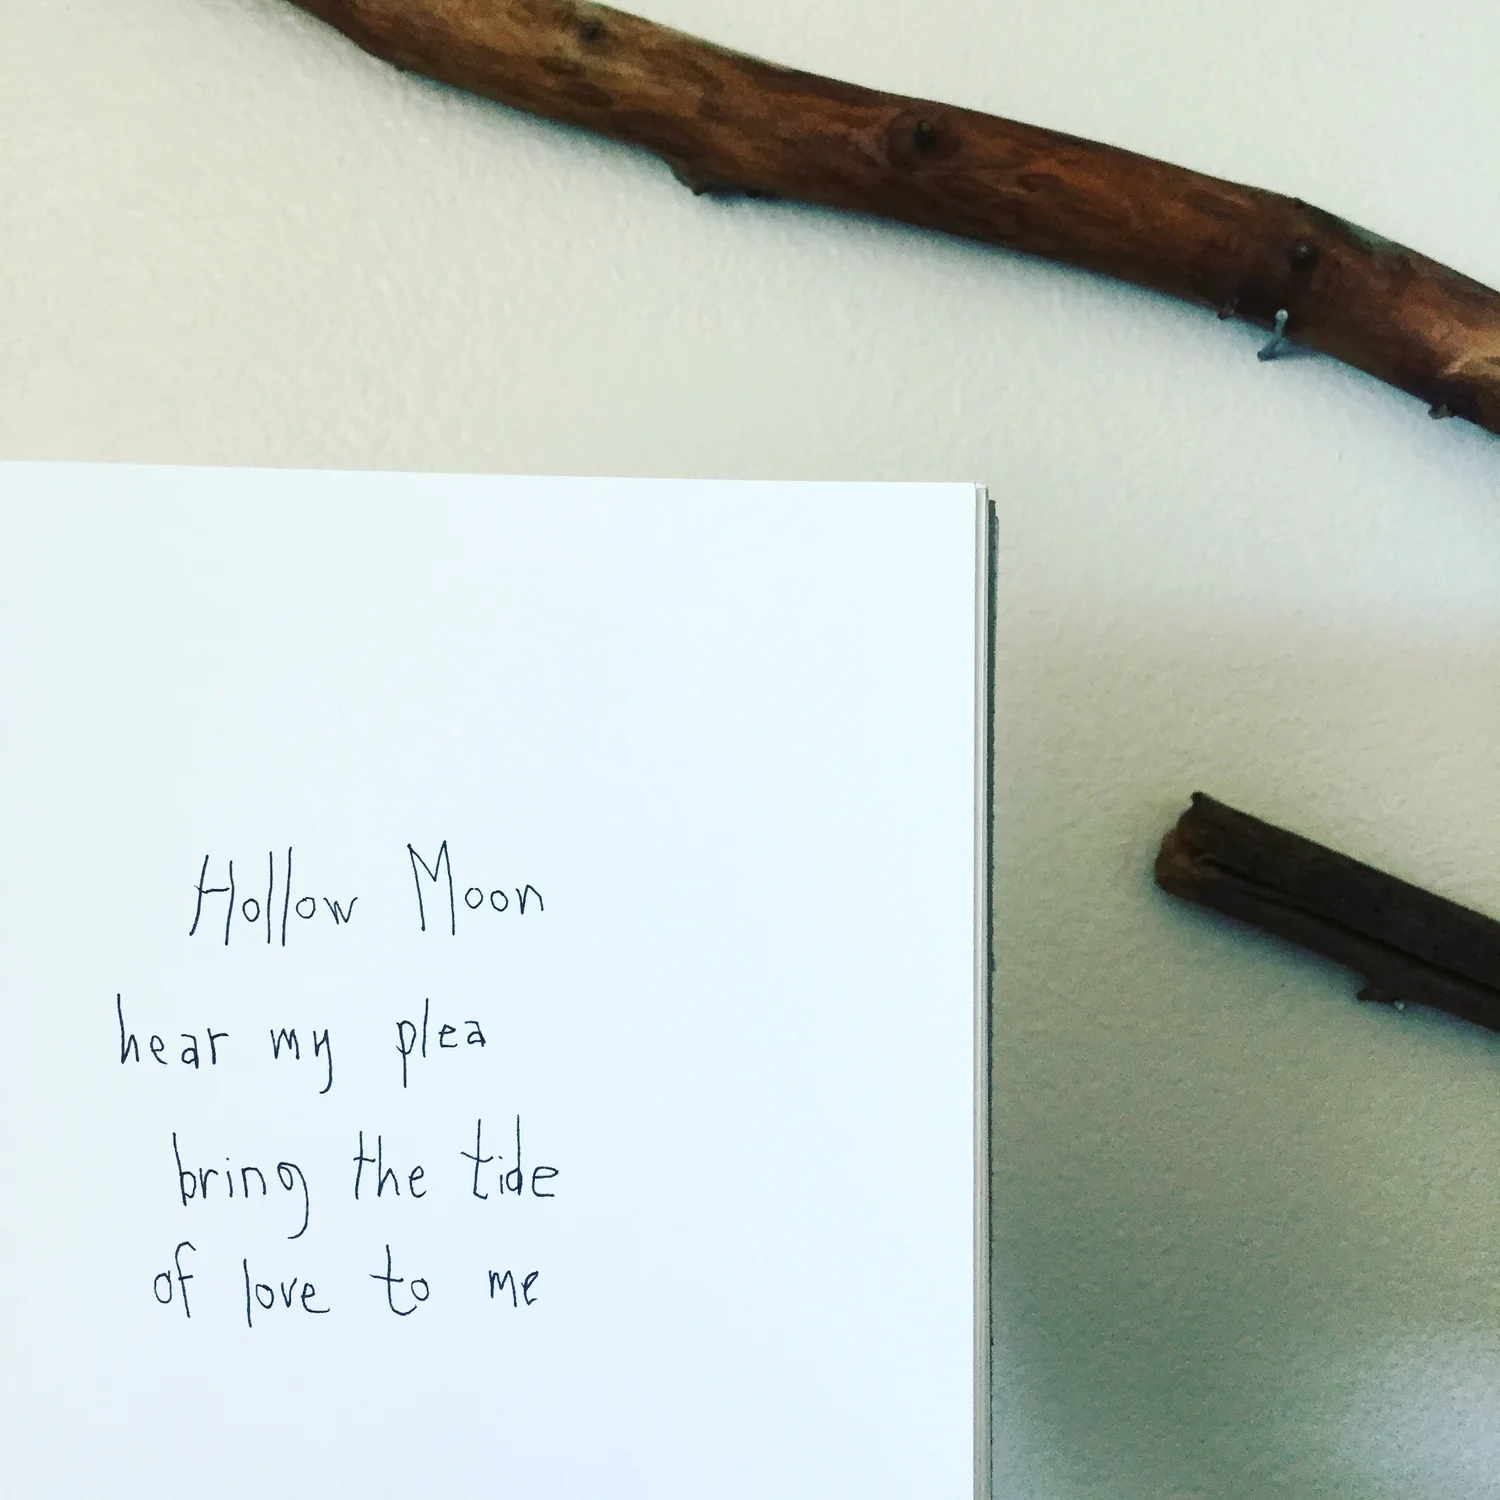 Hollow Moon
hear my plea
bring the tide
of love to me